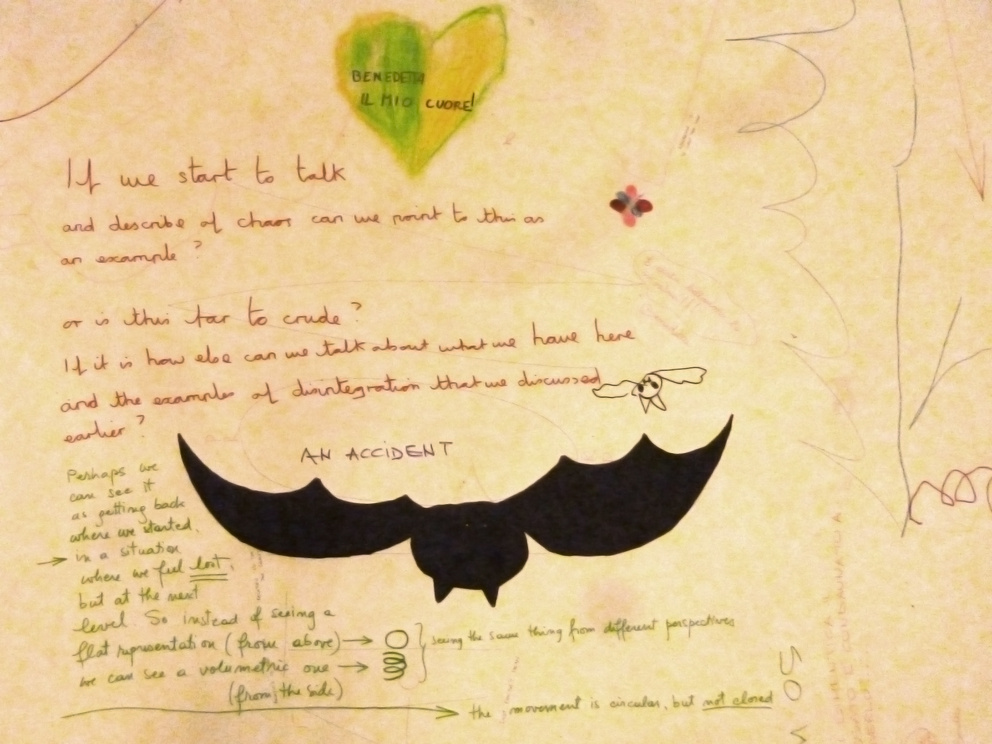 BENEDETTA
IL MIO CUORE!
If we start to talk
and describe of chaos can we point to this as
an example?
or is this far to crude?
If it is how else can we talk about what we have here
and the examples of disintegration that we discussed
earlier?
AN ACCIDENT
Perhaps we
can see it
as getting back
where we started,
→ in a situation
where we feel lost,
but at the next
level. So instead of seeing a
flat representation (from above) →
we can see a volumetric one →
(from the side)
seeing the same thing from different perspectives
the movement is circular, but not closed
SO